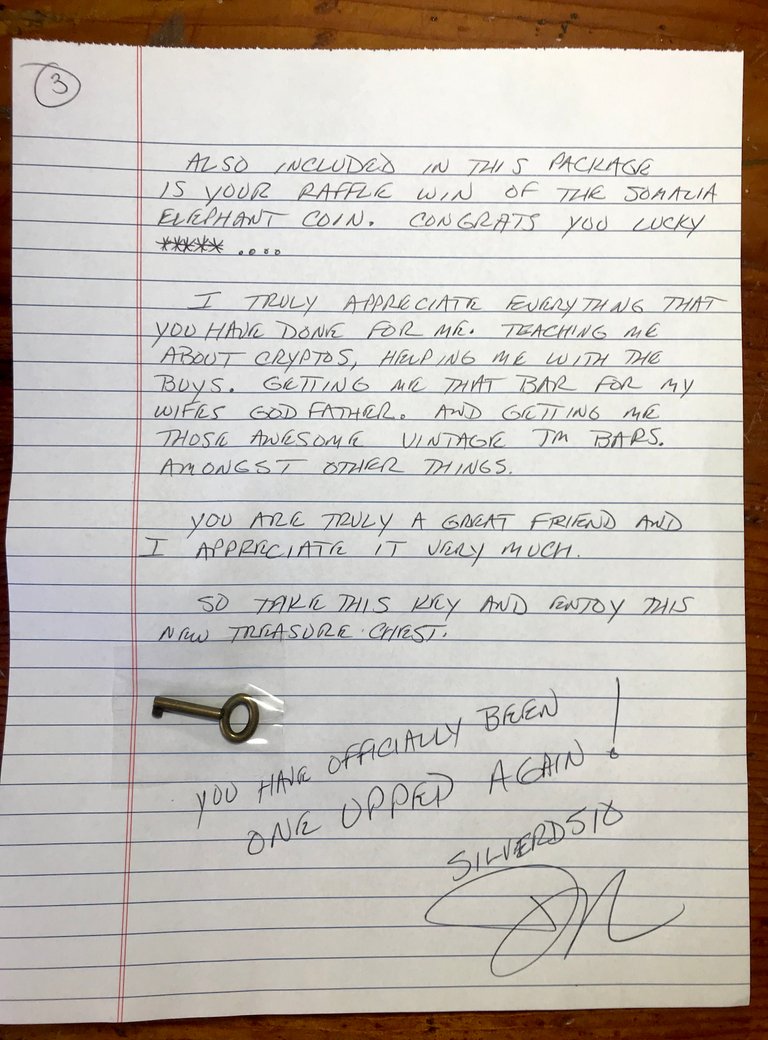 3
ALSO INCLUDED IN THIS PACKAGE
IS YOUR RAFFLE WIN OF THE SOMALIA
ELEPHANT COIN. CONGRATS YOU LUCKY
***** ....
I TRULY APPRECIATE EVERYTHING THAT
YOU HAVE DONE FOR ME. TEACHING ME
ABOUT CRYPTOS, HELPING ME WITH THE
BUYS. GETTING ME THAT BAR FOR MY
WIFES GOD FATHER. AND GETTING ME
THOSE AWESOME VINTAGE JM BARS.
AMONGST OTHER THINGS.
YOU ARE TRULY A GREAT FRIEND AND
I APPRECIATE IT VERY MUCH.
SO TAKE THIS KEY AND ENJOY THIS
NEW TREASURE CHEST.
YOU HAVE OFFICIALLY BEEN
ONE UPPED AGAIN!
SILVERD510